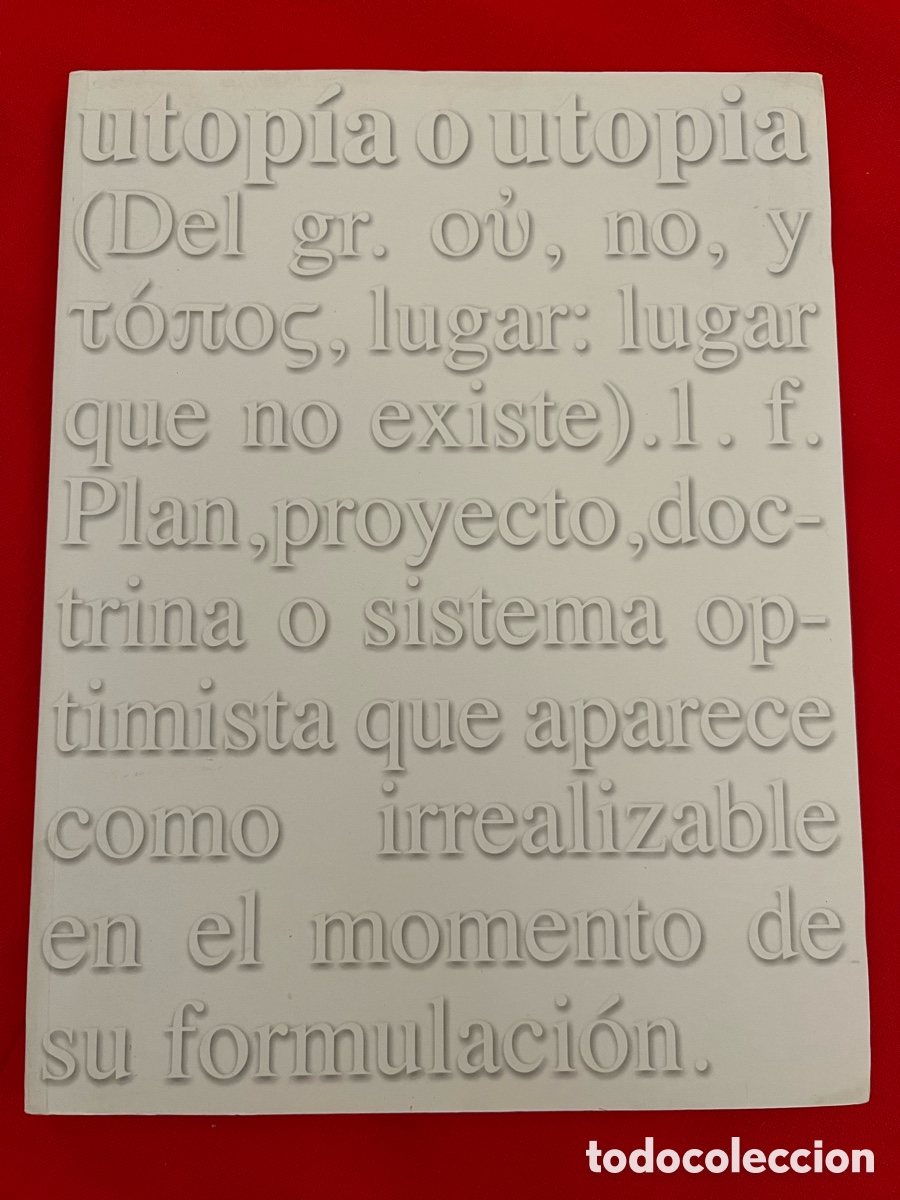 utopía o utopia
(Del gr. οὐ, no, y
τόπος, lugar: lugar
que no existe).1. f.
Plan,proyecto,doc-
trina o sistema op-
timista que aparece
como irrealizable
en el momento de
su formulación.
todocoleccion